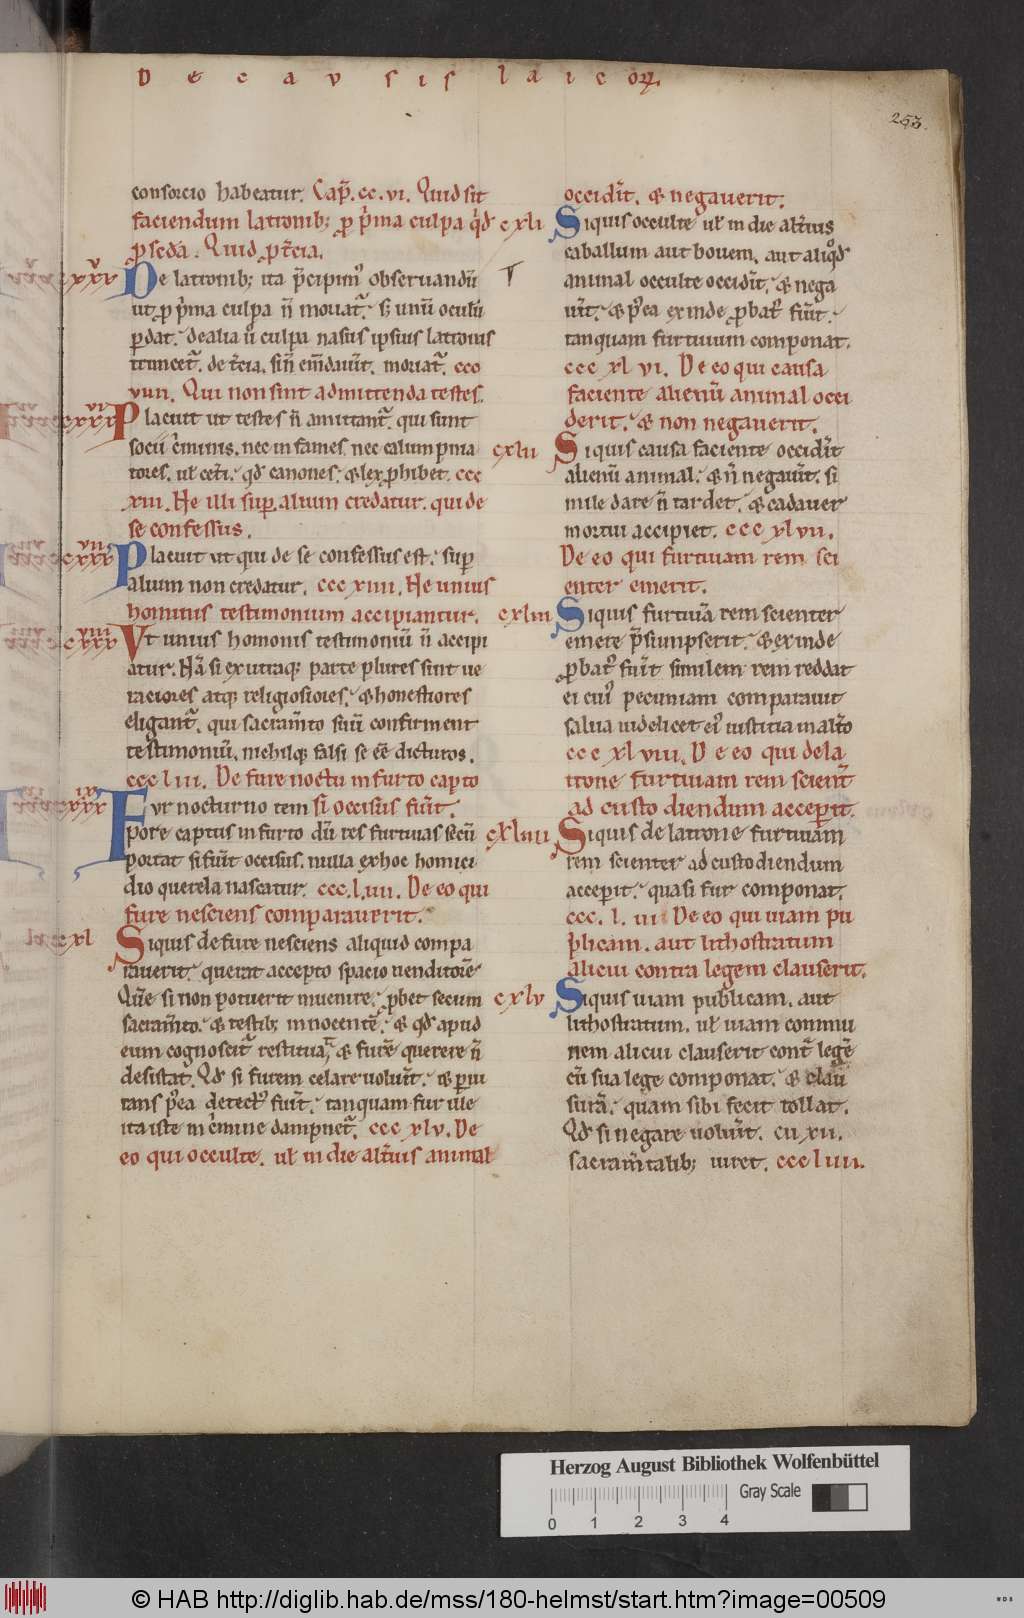 De causis laicoꝝ.
253.
consorcio habeatur. Cap̃. cc. vi. Quid sit
faciendum latronib; ꝓ p̾ma culpa q̾d
ꝓ sedã. Quid ꝓ t̃cia.
cxxxv
De latronib; ita p̃cipim᷒ obseruandũ
ut ꝓ p̾ma culpa ñ moriat᷑. sꝫ unũ oculũ
ꝑdat. de alia ũ culpa nasus ipsius latronis
truncet᷑. de t̃cia. si ñ em̃dauit̃. moriat᷑. ccc
viii. Qui non sint admittenda testes.
cxxxvi
Placuit ut testes ñ amittant᷑. qui sunt
socii c̾minis. nec infames. nec calumpnia
tores. ul̃ cet̃i. qd̃ canones. & lex ꝓhibet. ccc
xiii. Ne illi suꝑ alium credatur. qui de
se confessus.
cxxxvii
Placuit ut qui de se confessus est. suꝑ
alium non credatur. ccc xiiii. Ne unius
hominis testimonium accipiantur.
cxxxviii
Vt unius hominis testimoniũ ñ accipi
atur. Nã si ex utraq; parte plures sint ue
raciores atq; religiosiores. & honestiores
eligant᷑. qui sacram̃to suũ confirment
testimoniũ. nichilq; falsi se eẽ dicturos.
ccc l iii. De fure noctu in furto capto
cxxxix
Fur nocturno tem si occisus fũit.
pore captus in furto dũ res furtiuas secũ
portat si fũit occisus. nulla ex hoc homici
dio querela nascatur. ccc. l. iiii. De eo qui
fure nesciens comparauerit.
cxl
Siquis de fure nesciens aliquid compa
rauerit. querat accepto spacio uenditorẽ
Quẽ si non potuerit inuenire. ꝓbet secum
sacram̃to. & testib; innocentẽ. & qd̃ apud
eum cognoscit᷑ restituat. & furẽ querere ñ
desistat. Qd̃ si furem celare uolũit. & ꝑiu
rans p᷒ea detect᷒ fũit. tanquam fur ille
ita iste in c̾mine dampnet᷑. ccc xlv. De
eo qui occulte. ul̃ in die alt̃ius animal
occidit̃. & negauerit.
cxli
Siquis occulte ul̃ in die alt̃ius
caballum aut bouem. aut aliqd̃
animal occulte occidit̃. & nega
uit̃. & p᷒ea exinde ꝓbat᷒ fũit.
tanquam furtiuum componat.
ccc xl vi. De eo qui causa
faciente alienũ animal occi
derit. & non negauerit.
cxlii
Siquis causa faciente occidit̃
alienũ animal. & ñ negauit̃. si
mile dare ñ tardet. & cadauer
mortui accipiet. ccc xlvii.
De eo qui furtiuam rem sci
enter emerit.
cxliii
Siquis furtiuã rem scienter
emere p̃sumpserit. & exinde
ꝓbat᷒ fũit similem rem reddat
ei cui᷒ pecuniam comparauit
salua uidelicet ei᷒ iusticia in alt̃o
ccc xl viii. De eo qui de la
trone furtiuam rem scient̃
ad custodiendum acceꝑit.
cxliiii
Siquis de latrone furtiuam
rem scienter ad custodiendum
acceꝑit. quasi fur componat.
ccc. l. iii De eo qui uiam pu
plicam. aut lithostratum
alicui contra legem clauserit.
cxlv
Siquis uiam publicam. aut
lithostratum. ul̃ uiam commu
nem alicui clauserit cont᷑ legẽ
cũ sua lege componat. & clau
surã. quam sibi fecit tollat.
Qd̃ si negare uolũit. cu xii.
sacram̃talib; iuret. ccc l iiii.
Herzog August Bibliothek Wolfenbüttel
Gray Scale
0 1 2 3 4
© HAB http://diglib.hab.de/mss/180-helmst/start.htm?image=00509